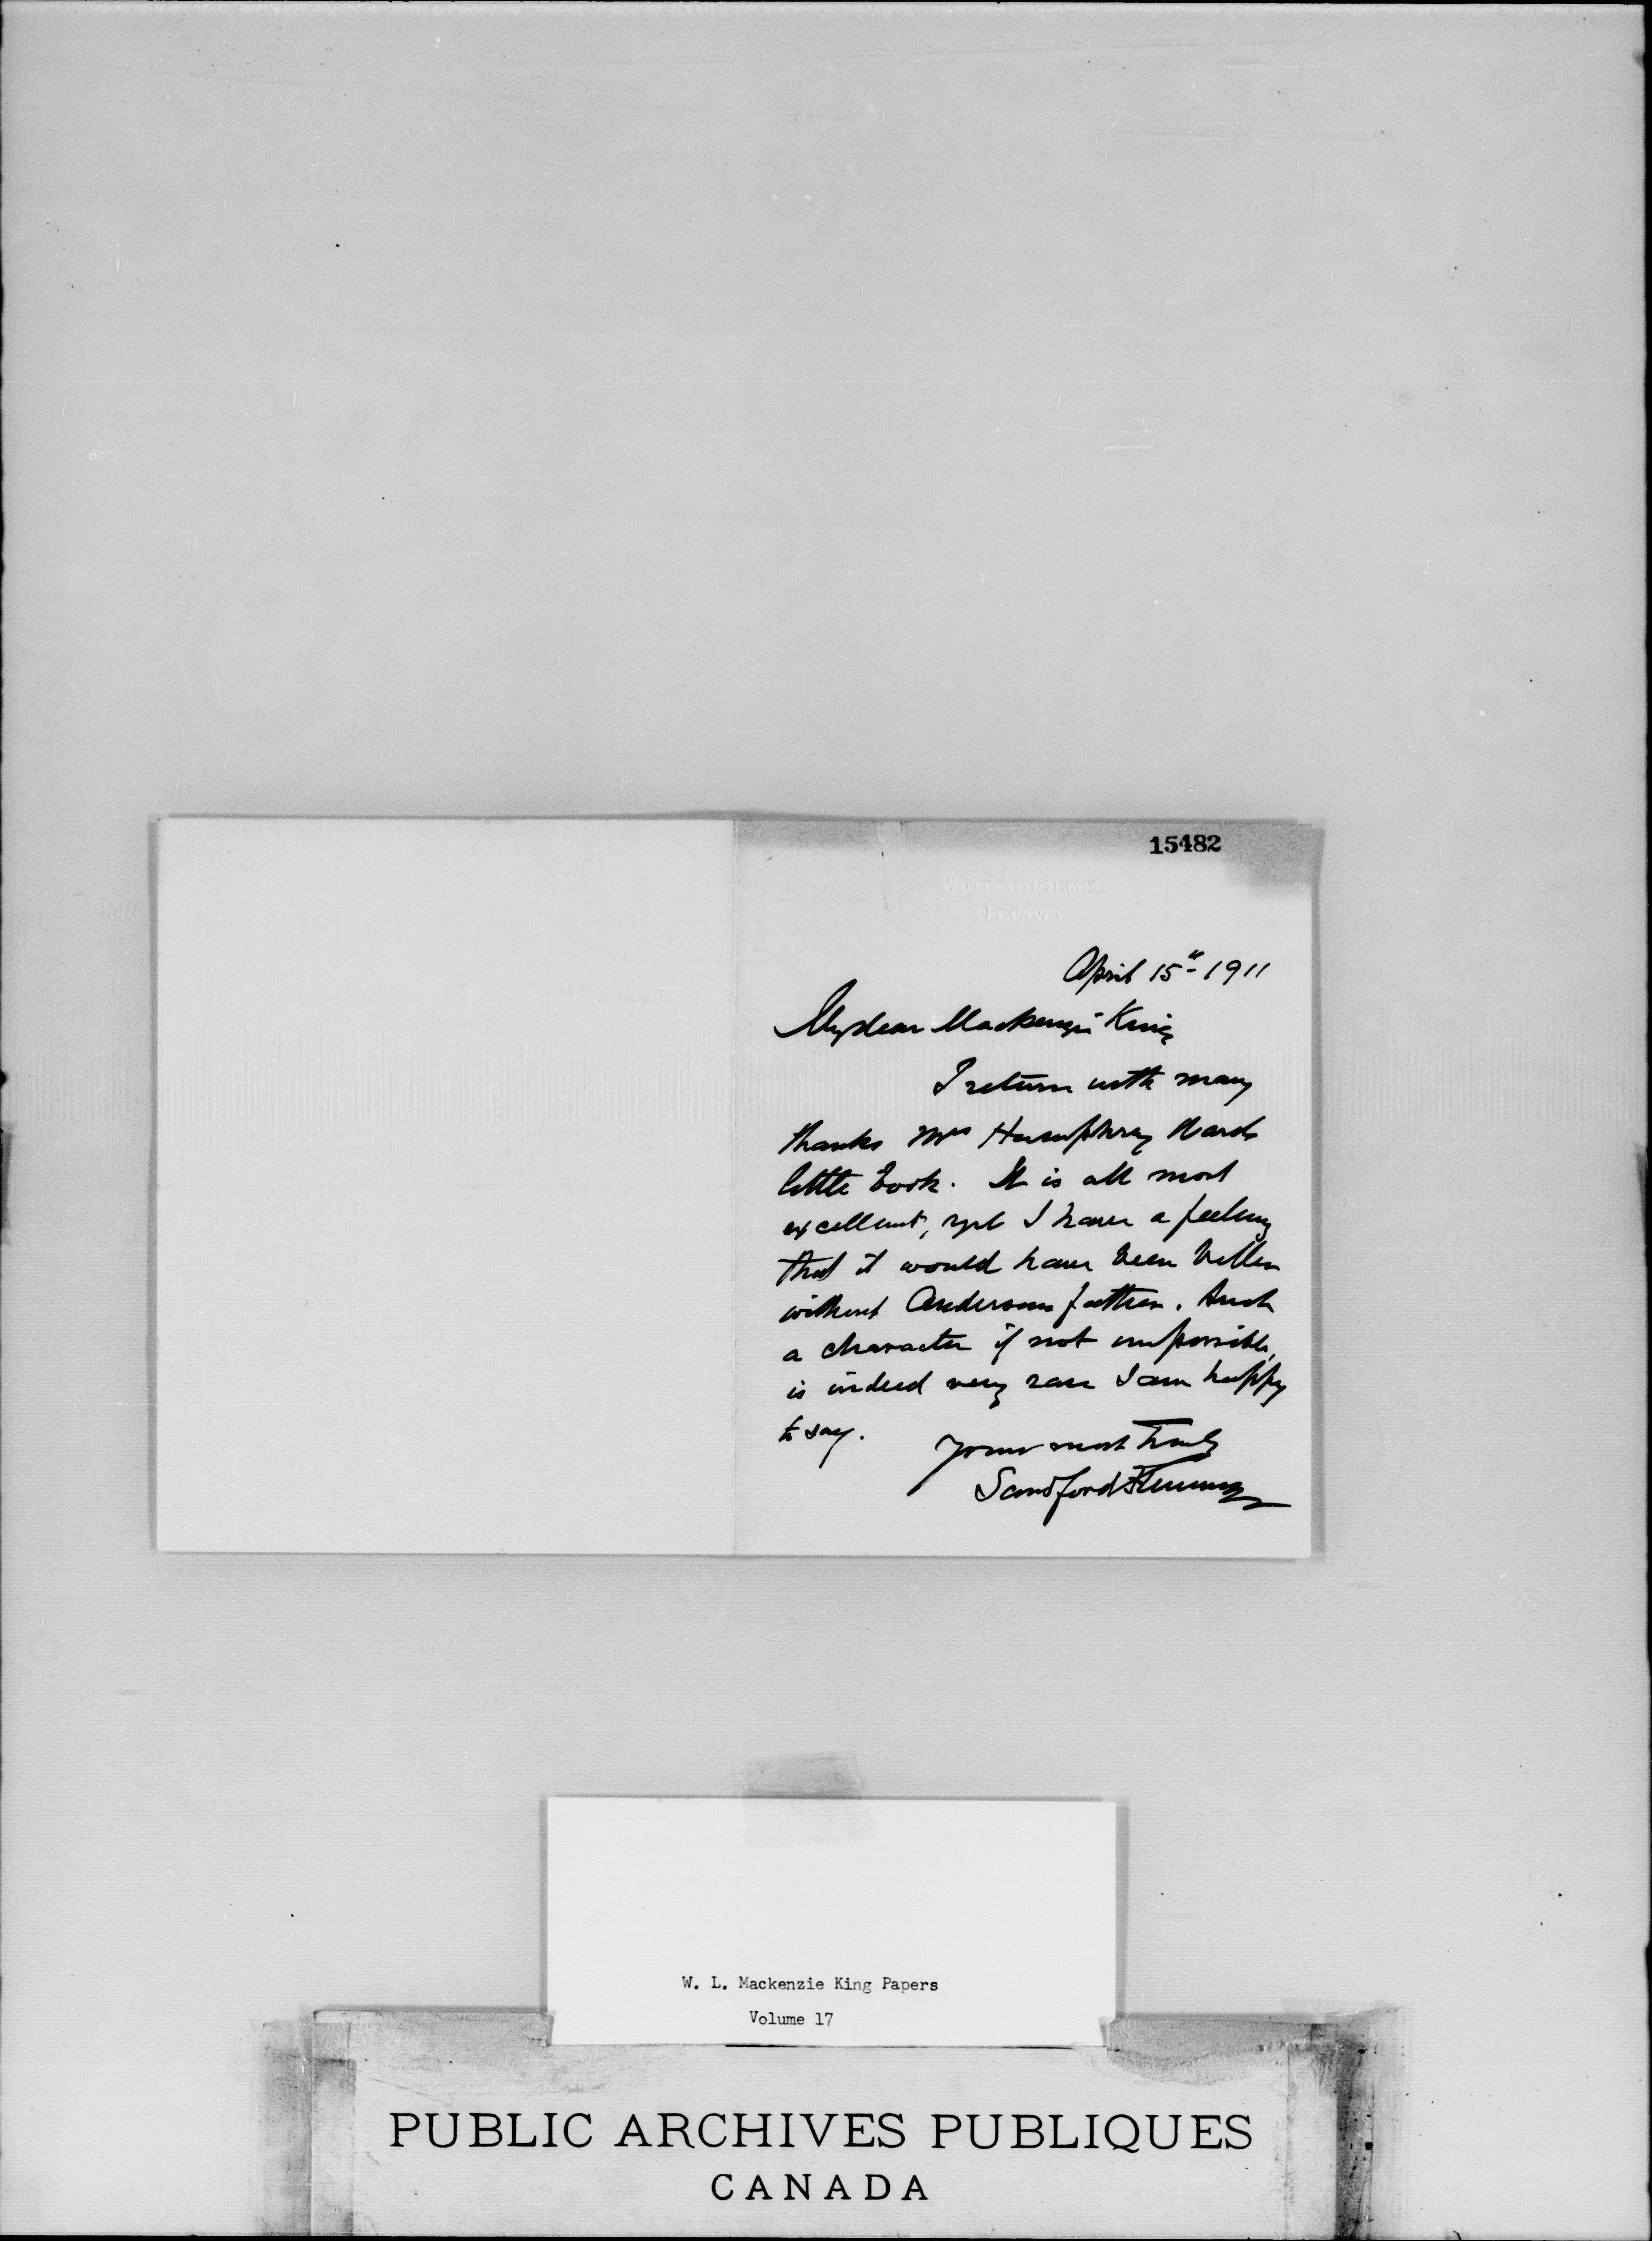 15482
WINTERHOLME,
OTTAWA
April 15th 1911
My dear Mackenzie King
I return with many
thanks Mrs Humphrey Wards
little book. It is all most
excellent, yet I have a feeling
that it would have been better
without Andersons father. Such
a character if not impossible,
is indeed very rare I am happy
to say.
Yours most truly
Sandford Fleming
W. L. Mackenzie King Papers
Volume 17
PUBLIC ARCHIVES PUBLIQUES
CANADA